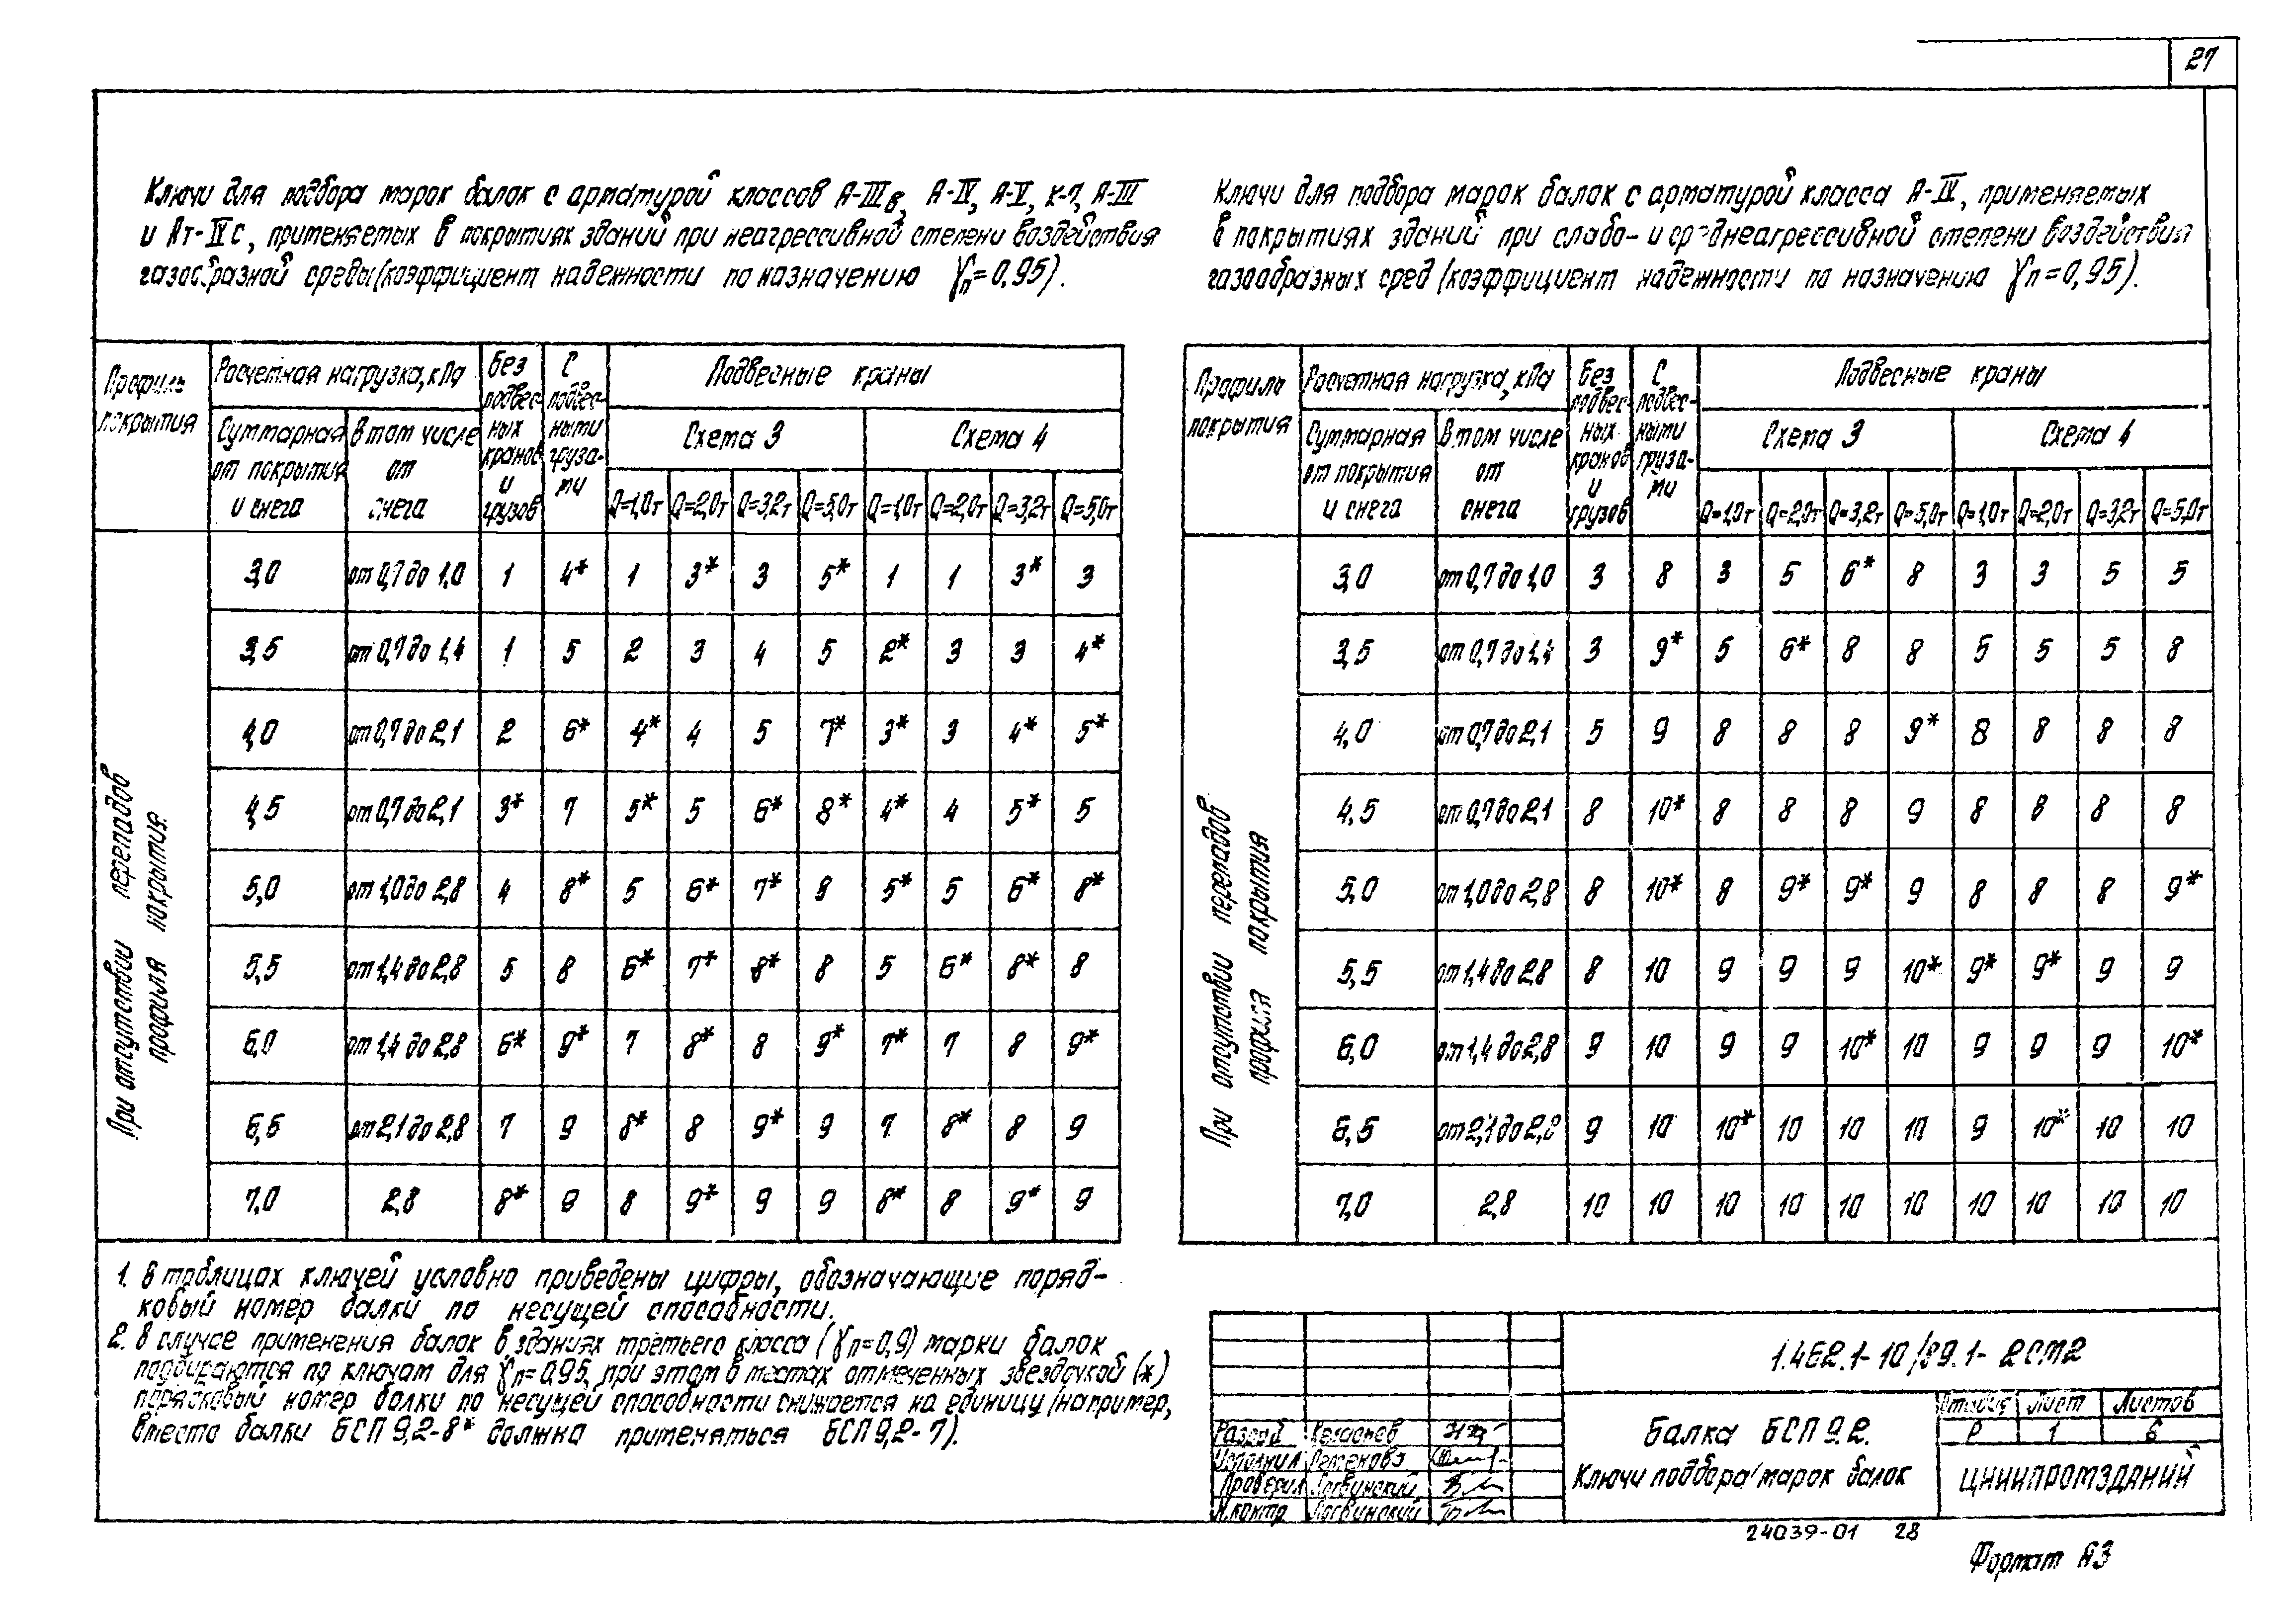 27
Ключи для подбора марок балок с арматурой классов А-IIIв, А-IV, А-V, К-7, А-III
и Ат-IVС, применяемых в покрытиях зданий при неагрессивной степени воздействия
газообразной среды (коэффициент надежности по назначению γn=0,95).
Профиль покрытия | Расчетная нагрузка, кПа | Без подвесных кранов и грузов | С подвесными грузами | Подвесные краны
Суммарная от покрытия и снега | В том числе от снега | Схема 3 | Схема 4
Q=1,0т Q=2,0т Q=3,2т Q=5,0т Q=1,0т Q=2,0т Q=3,2т Q=5,0т
При отсутствии перепадов
профиля покрытия.
3,0 от 0,7 до 1,0 1 4* 1 3* 3 5* 1 1 3* 3
3,5 от 0,7 до 1,4 1 5 2 3 4 5 2* 3 3 4*
4,0 от 0,7 до 2,1 2 6* 4* 4 5 7* 3* 3 4* 5*
4,5 от 0,7 до 2,1 3* 7 5* 5 6* 8* 4* 4 5* 5
5,0 от 1,0 до 2,8 4 8* 5 6* 7* 8 5* 5 6* 8*
5,5 от 1,4 до 2,8 5 8 6* 7* 8* 8 5 6* 8* 8
6,0 от 1,4 до 2,8 6* 9* 7 8* 8 9* 7* 7 8 9*
6,5 от 2,1 до 2,8 7 9 8* 8 9* 9 7 8* 8 9
7,0 2,8 8* 9 8 9* 9 9 8* 8 9* 9
1. В таблицах ключей условно приведены цифры, обозначающие поряд-
ковый номер балки по несущей способности.
2. В случае применения балок в зданиях третьего класса (γn=0,9) марки балок
подбираются по ключам для γn=0,95, при этом в местах отмеченных звездочкой (*)
порядковый номер балки по несущей способности снижается на единицу (например,
вместо балки БСП 9,2-8* должна применяться БСП 9,2-7).
Ключи для подбора марок балок с арматурой класса А-IV, применяемых
в покрытиях зданий при слабо- и среднеагрессивной степени воздействия
газообразных сред (коэффициент надежности по назначению γn=0,95).
Профиль покрытия | Расчетная нагрузка, кПа | Без подвесных кранов и грузов | С подвесными грузами | Подвесные краны
Суммарная от покрытия и снега | В том числе от снега | Схема 3 | Схема 4
Q=1,0т Q=2,0т Q=3,2т Q=5,0т Q=1,0т Q=2,0т Q=3,2т Q=5,0т
При отсутствии перепадов
профиля покрытия
3,0 от 0,7 до 1,0 3 8 3 5 6* 8 3 3 5 5
3,5 от 0,7 до 1,4 3 9* 5 6* 8 8 5 5 5 8
4,0 от 0,7 до 2,1 5 9 8 8 8 9* 8 8 8 8
4,5 от 0,7 до 2,1 8 10* 8 8 8 9 8 8 8 8
5,0 от 1,0 до 2,8 8 10* 8 9* 9* 9 8 8 8 9*
5,5 от 1,4 до 2,8 8 10 9 9 9 10* 9* 9* 9 9
6,0 от 1,4 до 2,8 9 10 9 9 10* 10 9 9 9 10*
6,5 от 2,1 до 2,8 9 10 10* 10 10 10 9 10* 10 10
7,0 2,8 10 10 10 10 10 10 10 10 10 10
1.462.1-10/89.1-2СМ2
Балка БСП 9.2.
Ключи подбора марок балок
Стадия Лист Листов
Р 1 6
ЦНИИПРОМЗДАНИЙ
Разраб
Исполнил Семенова
Проверил
Н.контр
24039-01 28
Формат А3